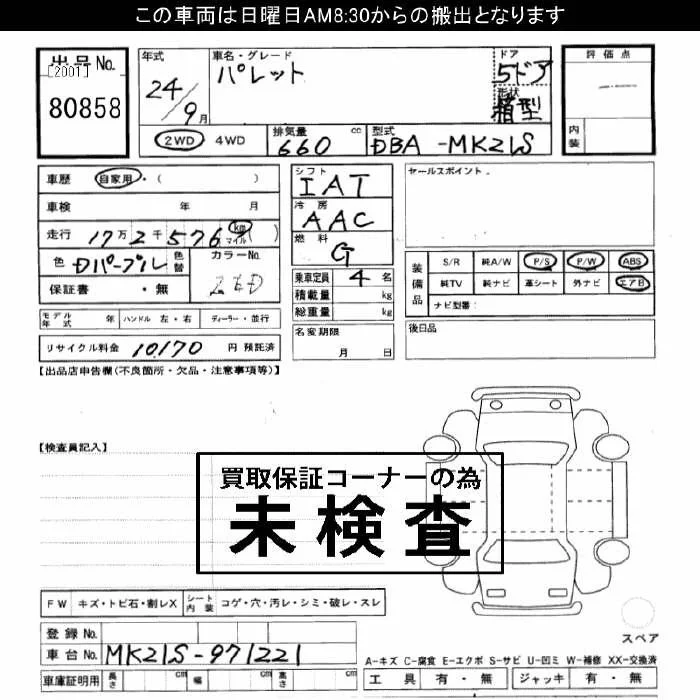 この車両は日曜日AM8:30からの搬出となります
出品No. [2001] 80858
年式 24/9月
車名・グレード パレット
ドア 5ドア
形状 箱型
評価点
内装
2WD 4WD
排気量 660 cc
型式 DBA-MK21S
車歴 自家用・( )
車検 年 月
走行 17万2千576 km マイル )
色 Dパープル 色替
カラーNo.
保証書 ・無
シフト IAT
冷房 AAC
燃料 G
乗車定員 4 名
積載量 kg
総重量 kg
名変期限 月 日
セールスポイント.
装備品 S/R 純A/W P/S P/W ABS
純TV 純ナビ 革シート 外ナビ エアB
ナビ型番:
後日品
モデル年式 年 ハンドル 左・右 ディーラー・並行
リサイクル料金 10170 円 預託済
【出品店申告欄(不良箇所・欠品・注意事項等)】
【検査員記入】
買取保証コーナーの為
未検査
FW キズ・トビ石・割レX シート内装 コゲ・穴・汚レ・シミ・破レ・スレ
登録No.
車台No. MK21S-971221
車庫証明用 長さ cm 幅 cm 高さ cm
スペア
A-キズ C-腐食 E-エクボ S-サビ U-凹ミ W-補修 XX-交換済
工具 有・無 ジャッキ 有・無